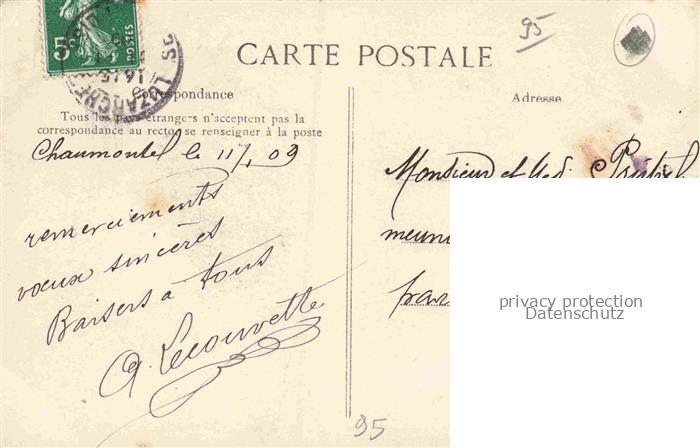 5
POSTES
LUZARCHES
95
CARTE POSTALE
Correspondance
Tous les pays étrangers n'acceptent pas la
correspondance au recto, se renseigner à la poste
Chaumontel le 11/1 09
remerciements
vœux sincères
Baisers à tous
A. Lecouvette
95
Adresse
Monsieur et
meuni
par
privacy protection
Datenschutz